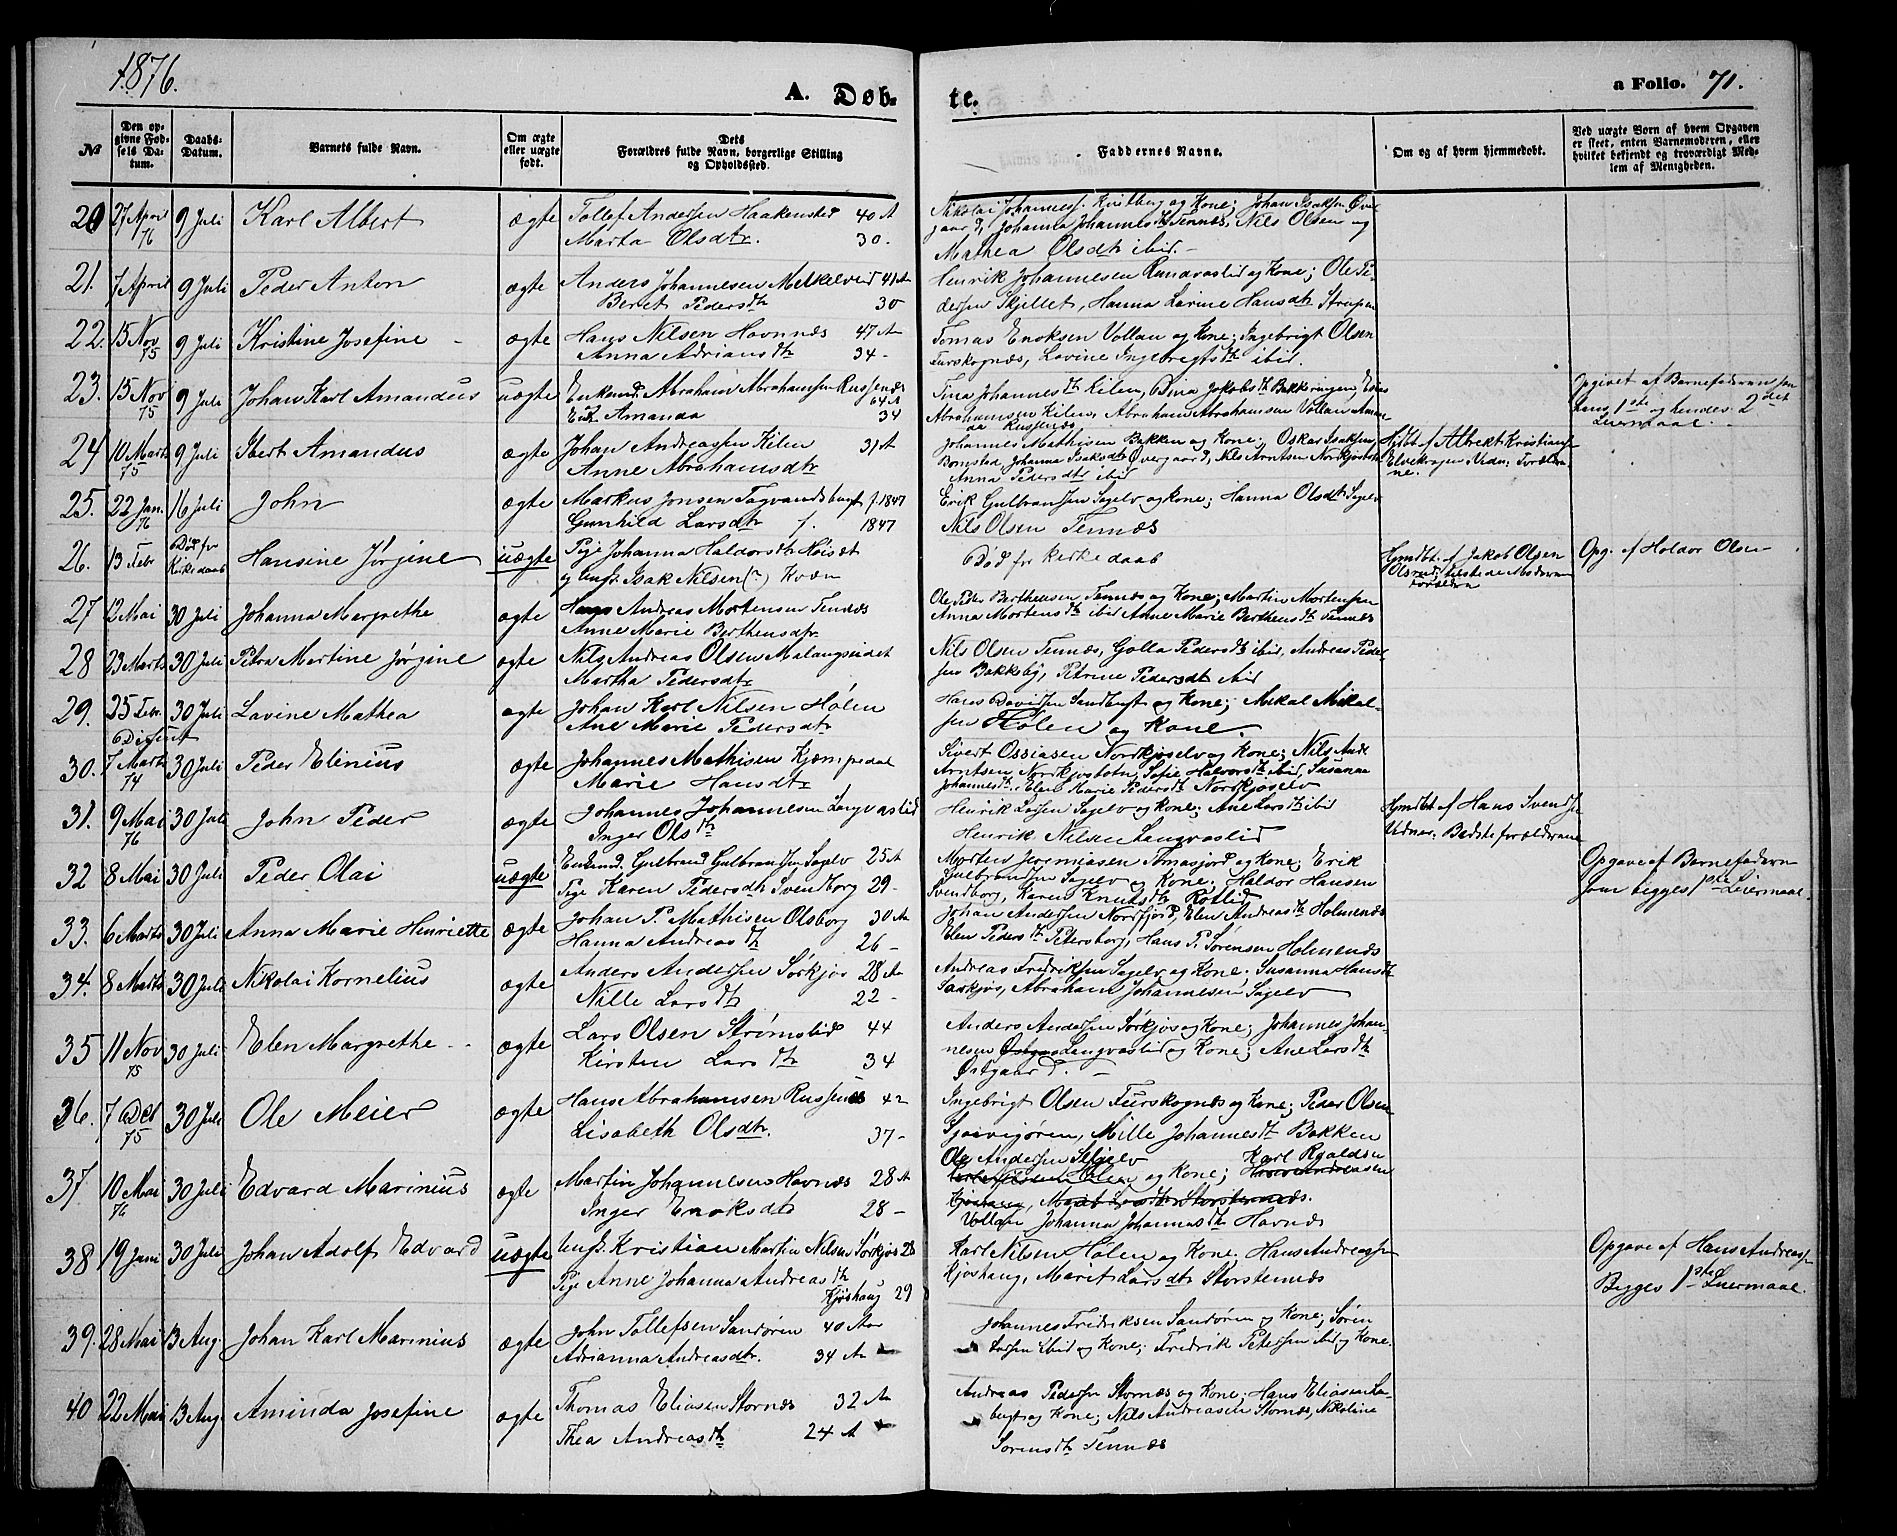 1876.
A. Døb-
te.
a Folio. 71.
№
Den op-
givne Fød-
sels Da-
tum.
Daabs-
Datum.
Barnets fulde Navn.
Om ægte
eller uægte
født.
Dets
Forældres fulde Navn, borgerlige Stilling
og Opholdssted.
Faddernes Navne.
Om og af hvem hjemmedøbt.
Ved uægte Børn af hvem Opgaven
er skeet, enten Barnemoderen, eller
hvilket bekjendt og troværdigt Med-
lem af Menigheden.
20 27 April 76 9 Juli Karl Albert ægte Tollef Andersen Haakenstad 40 A
Marta Olsdtr. 30.
Nikolai Johannes. Kvitberg og Kone; Johan Isaksen Øver
gaard, Johanna Johannesdtr Tennæs, Nils Olsen og
Mathea Olsdtr ibid.
21. 7 April 9 Juli Peder Anton ægte Anders Johannesen Melkelvlid 41 A
Beret Pedersdtr 30
Henrik Johannesen Rundvaslid og Kone; Ole Pe-
dersen Skjellet, Hanna Larine Hansdtr Strupen
22. 15 Nov 75 9 Juli Kristine Josefine ægte Hans Nilsen Havnnæs 47 A
Anna Adriansdtr 34 -
Tomas Enoksen Vollan og Kone; Ingebrigt Olsen
Furskognæs, Lovine Ingebrigtsdtr ibid.
23. 15 Nov 75 9 Juli Johan Karl Amandus uægte Enkemd. Abraham Abrahamsen Russenæs 64 A
Enk. Amanda 34
Tina Johannesdtr Kilen, Dina Jakobsdtr Bakkeningen, Enos
Abrahamsen Kilen, Abraham Abrahamsen Vollan Aman
da Russenæs
Opgivet af Barnefaderen som
hans 1ste og hendes 2det
Leiermaal.
24 10 Marts 75 9 Juli Ibert Amandus ægte Johan Andreassen Kilen 31 A
Anne Abrahamsdtr
Johannes Mathisen Bakken og Kone; Oskar Isaksen
Bomstad, Johanna Isaksdtr Øvergaard, Nils Arntsen Nordkjosbotn
Anna Pedersdtr ibid
Hjdbt. af Albrekt Kristians
Elvekrogen; Vidn: Foreldre
ne.
25. 22 Jan. 76 16 Juli John ægte Markus Jonsen Tagvandsbugt f. 1847
Gunhild Larsdtr f. 1847
Erik Gulbrandsen Sagelv og Kone; Hanna Olsdtr Sagelv
Nils Olsen Tennæs
26. 13 Febr Død før Kirkedaab Hansine Jørgine uægte Pige Johanna Haldorsdtr Moiset
og Ungk. Isak Nilsen (?) Kvæn
Død før Kirkedaab
Hjmdbt. af Jakob Olsen
Olsrud; tilstede Moderens
Forældre
Opg. af Haldor Olsen
27 12 Mai 30 Juli Johanna Margrethe ægte Hans Andreas Mortensen Tennæs
Anne Marie Berthensdtr.
Ole Peder Berthensen Tennæs og Kone; Martin Mortensen
Anna Mortensdtr ibid Anne Marie Berthensdtr Tennæs
28 23 Marts 30 Juli Petra Martine Jørgine ægte Nils Andreas Olsen Malangseidet
Martha Pedersdtr
Nils Olsen Tennæs, Golla Pedersdtr ibid, Andreas Peder-
sen Bakkeby, Petrine Pedersdtr ibid
29. 25 Febr. 30 Juli Lavine Mathea ægte Johan Karl Nilsen Holen
Ane Marie Pedersdtr
Hans Davidsen Sandbugt og Kone; Mikal Mikal-
sen Holen og Kone.
Dissent
30. 7 Marts 74 30 Juli Peder Elinius ægte Johannes Mathisen Kjempedal
Marie Hansdtr
Sivert Ossiasen Nordkjoselv og Kone; Nils Andr
Arntsen Nordkjosbotn, Sofie Halvorsdtr ibid, Susanna
Johannesdtr, Elen Marie Pedersdtr Nordkjoselv
31. 9 Mai 76 30 Juli John Peder ægte Johannes Johannesen Langvaslid
Inger Olsdtr
Henrik Larsen Sagelv og Kone; Ane Larsdtr ibid
Henrik Nilsen Langvaslid
Hjmdbt af Hans Svends
Vidner: Bedsteforældrene
32 8 Mai 30 Juli Peder Olai uægte Enkemd. Gulbrand Gulbrandsen Sagelv 25 A
Pige Karen Pedersdtr Svendborg 29 -
Morten Jeremiasen Tomasjord og Kone; Erik
Gulbrandsen Sagelv og Kone; Haldor Hansen
Svendborg, Karen Knutsdtr Rotlid
Opgave af Barnefaderen
som begges 1ste Leiermaal.
33. 6 Marts 30 Juli Anna Marie Henriette ægte Johan P. Mathisen Olsborg 30 A
Hanna Andreasdtr 26 -
Johan Andersen Nordfjord, Elen Andreasdtr Holmenæs
Elen Pedersdtr Petersborg, Hans P. Sørensen Holmenæs
34. 8 Marts 30 Juli Nikolai Kornelius ægte Anders Andersen Sørkjos 28 A
Nille Larsdtr 22 -
Andreas Fredriksen Sagelv og Kone; Susanna Hansdtr
Sørkjos, Abraham Johannesen Sagelv
35 11 Nov 75 30 Juli Elen Margrethe ægte Lars Olsen Strømslid 44
Kirsten Larsdtr 34
Anders Andersen Sørkjos og Kone; Johannes Johan-
nesen Østgaa Langvaslid og Kone; Ane Larsdtr
Østgaard.
36. 7 Deb 75 30 Juli Ole Meier ægte Hans Abrahamsen Russenæs 42
Lisabeth Olsdtr. 37 -
Ingebrigt Olsen Furskognæs og Kone; Peder Olsen
Sjøvigøren, Mille Johannesdtr Bakken
37. 10 Mai 76 30 Juli Edvard Marinius ægte Martin Johannesen Havnæs 28 A
Inger Enoksdtr 28 -
Ole Andersen Skjelv Karl Roaldsen
og Kone; Hans Andreasen
Kjoshaug, Marit Larsdtr Storstennæs.
Vollan Johanna Johannesdtr Havnæs
38 19 Juni 30 Juli Johan Adolf Edvard uægte Ungk. Kristian Martin Nilsen Sørkjos 28
Pige Anne Johanna Andreasdtr
Kjoshaug 29
Karl Nilsen Holen og Kone. Hans Andreassen
Kjoshaug, Marit Larsdtr Storstennæs
Opgave af Hans Andreass
Begges 1ste Leiermaal.
39. 28 Mai 13 Aug. Johan Karl Marinius ægte John Tollefsen Sandøren 40 Aar
Adrianna Andreasdtr. 34 A
Johannes Fredriksen Sandøren og Kone; Søren
Larsen ibid og Kone; Fredrik Petersen ibid og Kone.
40 22 Mai 13 Aug Aminda Josefine ægte Thomas Eliasen Stornæs 32 A
Thea Andreasdtr 24 A
Andreas Pedersen Stornæs og Kone; Hans Eliasen Sa-
bugt og Kone; Nils Andreasen Stornæs, Nikoline
Sørensdtr Tennæs